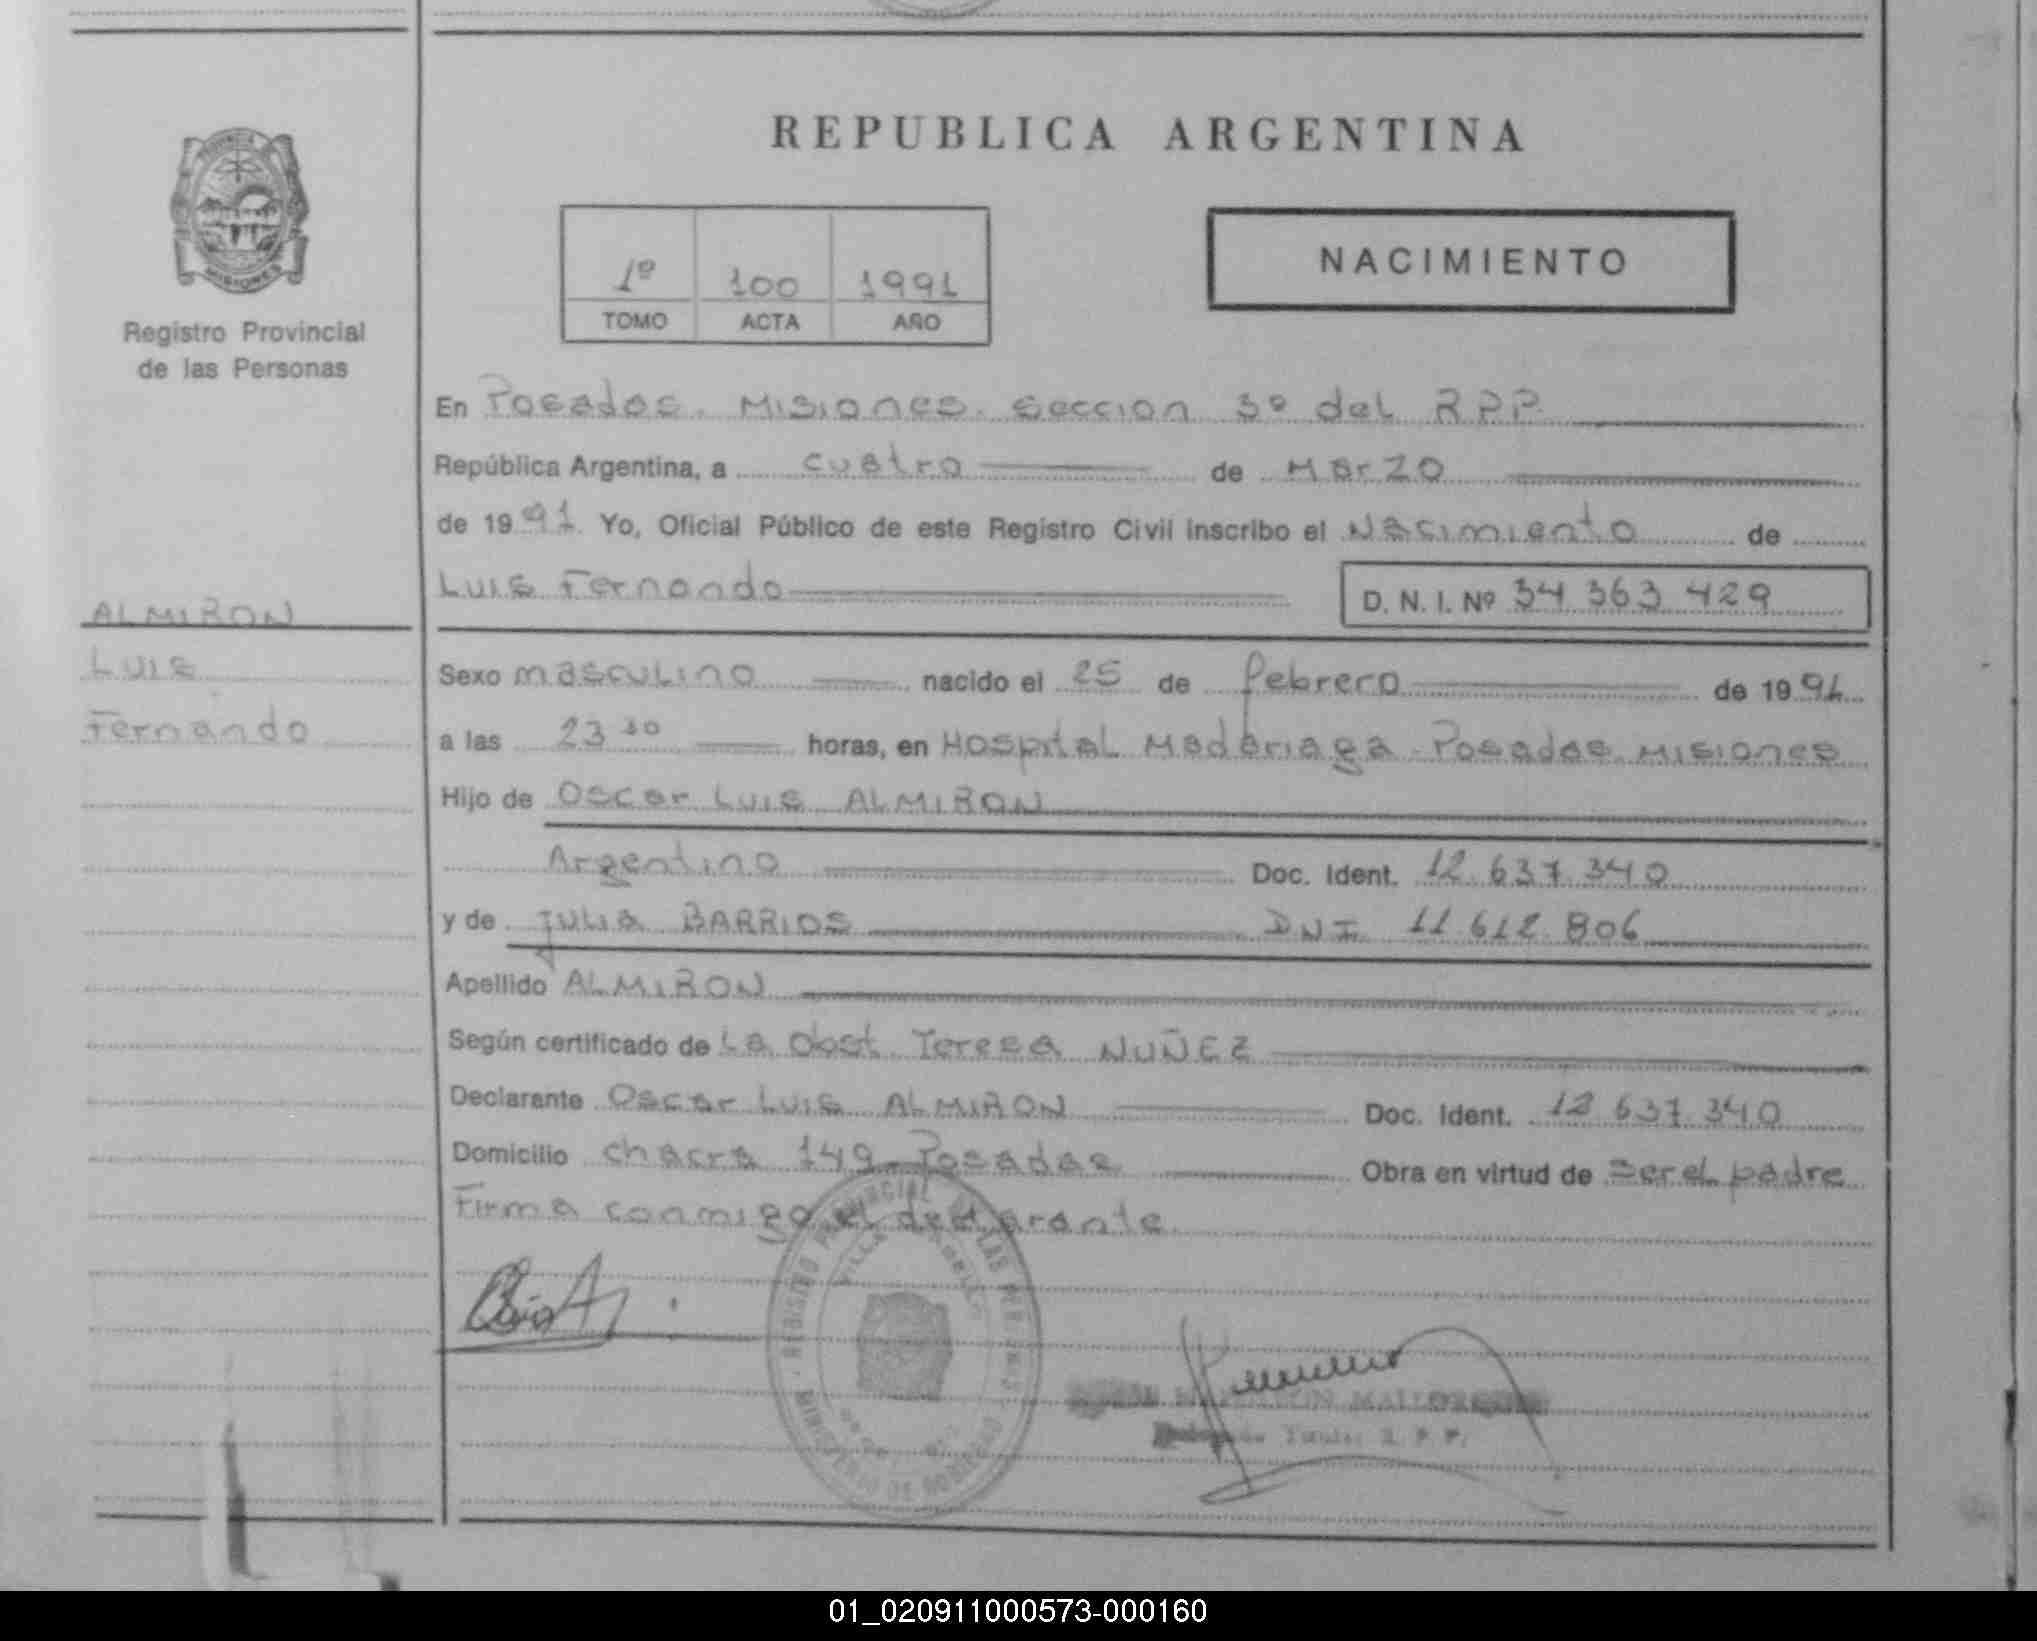 REPUBLICA ARGENTINA
PROVINCIA
MISIONES
Registro Provincial
de las Personas
1º 100 1991
TOMO ACTA AÑO
NACIMIENTO
En Posadas. Misiones. Seccion 3º del R.P.P.
República Argentina, a cuatro de Marzo
de 1991. Yo, Oficial Público de este Registro Civil inscribo el Nacimiento de
Luis Fernando D. N. I. Nº 34 363 429
ALMIRON
Luis
Fernando
Sexo masculino nacido el 25 de febrero de 1991
a las 23 30 horas, en Hospital Madariaga Posadas Misiones
Hijo de Oscar Luis ALMIRON
Argentino Doc. Ident. 12.637.340
y de Julia BARRIOS DNI 11 612 806
Apellido ALMIRON
Según certificado de La Obst. Teresa NUÑEZ
Declarante Oscar Luis ALMIRON Doc. Ident. 12 637 340
Domicilio chacra 149 Posadas Obra en virtud de ser el padre
Firma conmigo el declarante.
REGISTRO PROVINCIAL DE LAS PERSONAS
MINISTERIO DE GOBIERNO
VILLA
R. P. P.
01_020911000573-000160